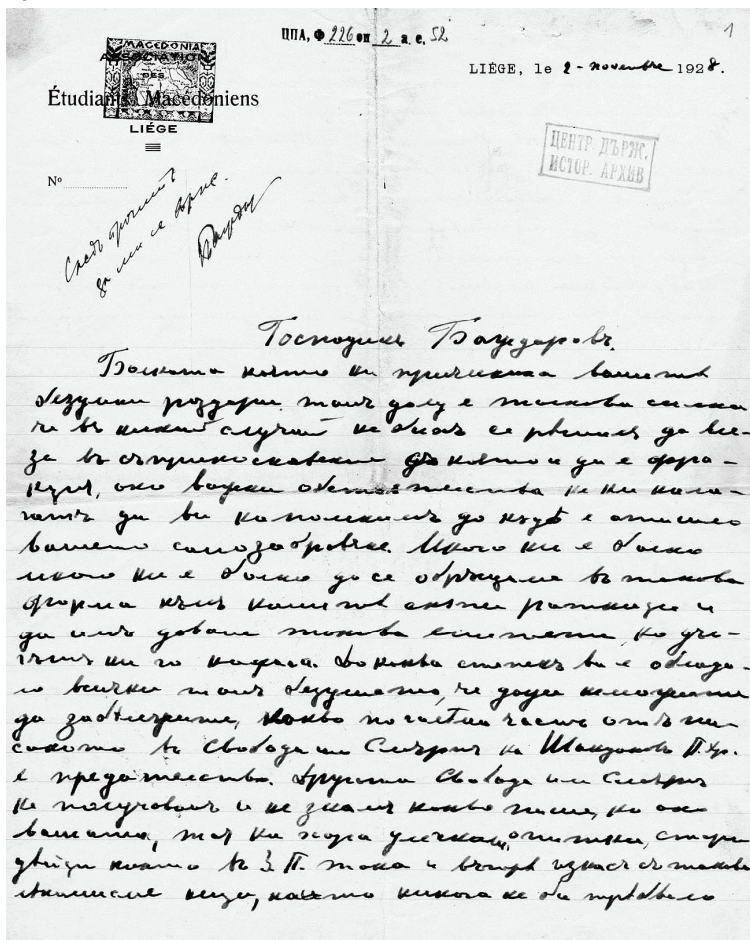 ЦПА, Ф 226 оп 2 а. е. 52
1
MACEDONIA
ASSOCIATION
DES
Étudiants Macédoniens
LIÉGE
LIÉGE, le 2 - novembre 1928.
ЦЕНТР. ДЪРЖ.
ИСТОР. АРХИВ
Nº
Следъ прочитъ
да ми се върне.
Господинъ Баждаровъ,
Болката която ни причинява вашитѣ
безумни раздори тамъ долу е толкова силна
че въ никой случай не бихъ се рѣшилъ да влѣ-
за въ съприкосновение съ която и да е фрак-
ция, ако важни обстоятелства не ни нала-
гатъ да ви напомнимъ до кѫдѣ е отишло
вашето самозабравяне. Много ни е болно
много ни е болно да се обръщаме въ такава
форма къмъ нашитѣ
да имъ даваме такива но дъл-
гътъ ни го налага. До каква степень ви е обладa-
ло всички това безумие, че дори не можете
да забѣлѣжите, какво по-голѣма часть отъ пи-
саното въ Свобода или Смърть на Шанданова П. гр.
е предателство. Другата Свобода или Смърть
не получаваме и не знаемъ какво пише, но ако
вашата, тая на хора улегнали, опитни, стари
дейци която в 3 П. така и
нѣща, които никога не би трѣбвало